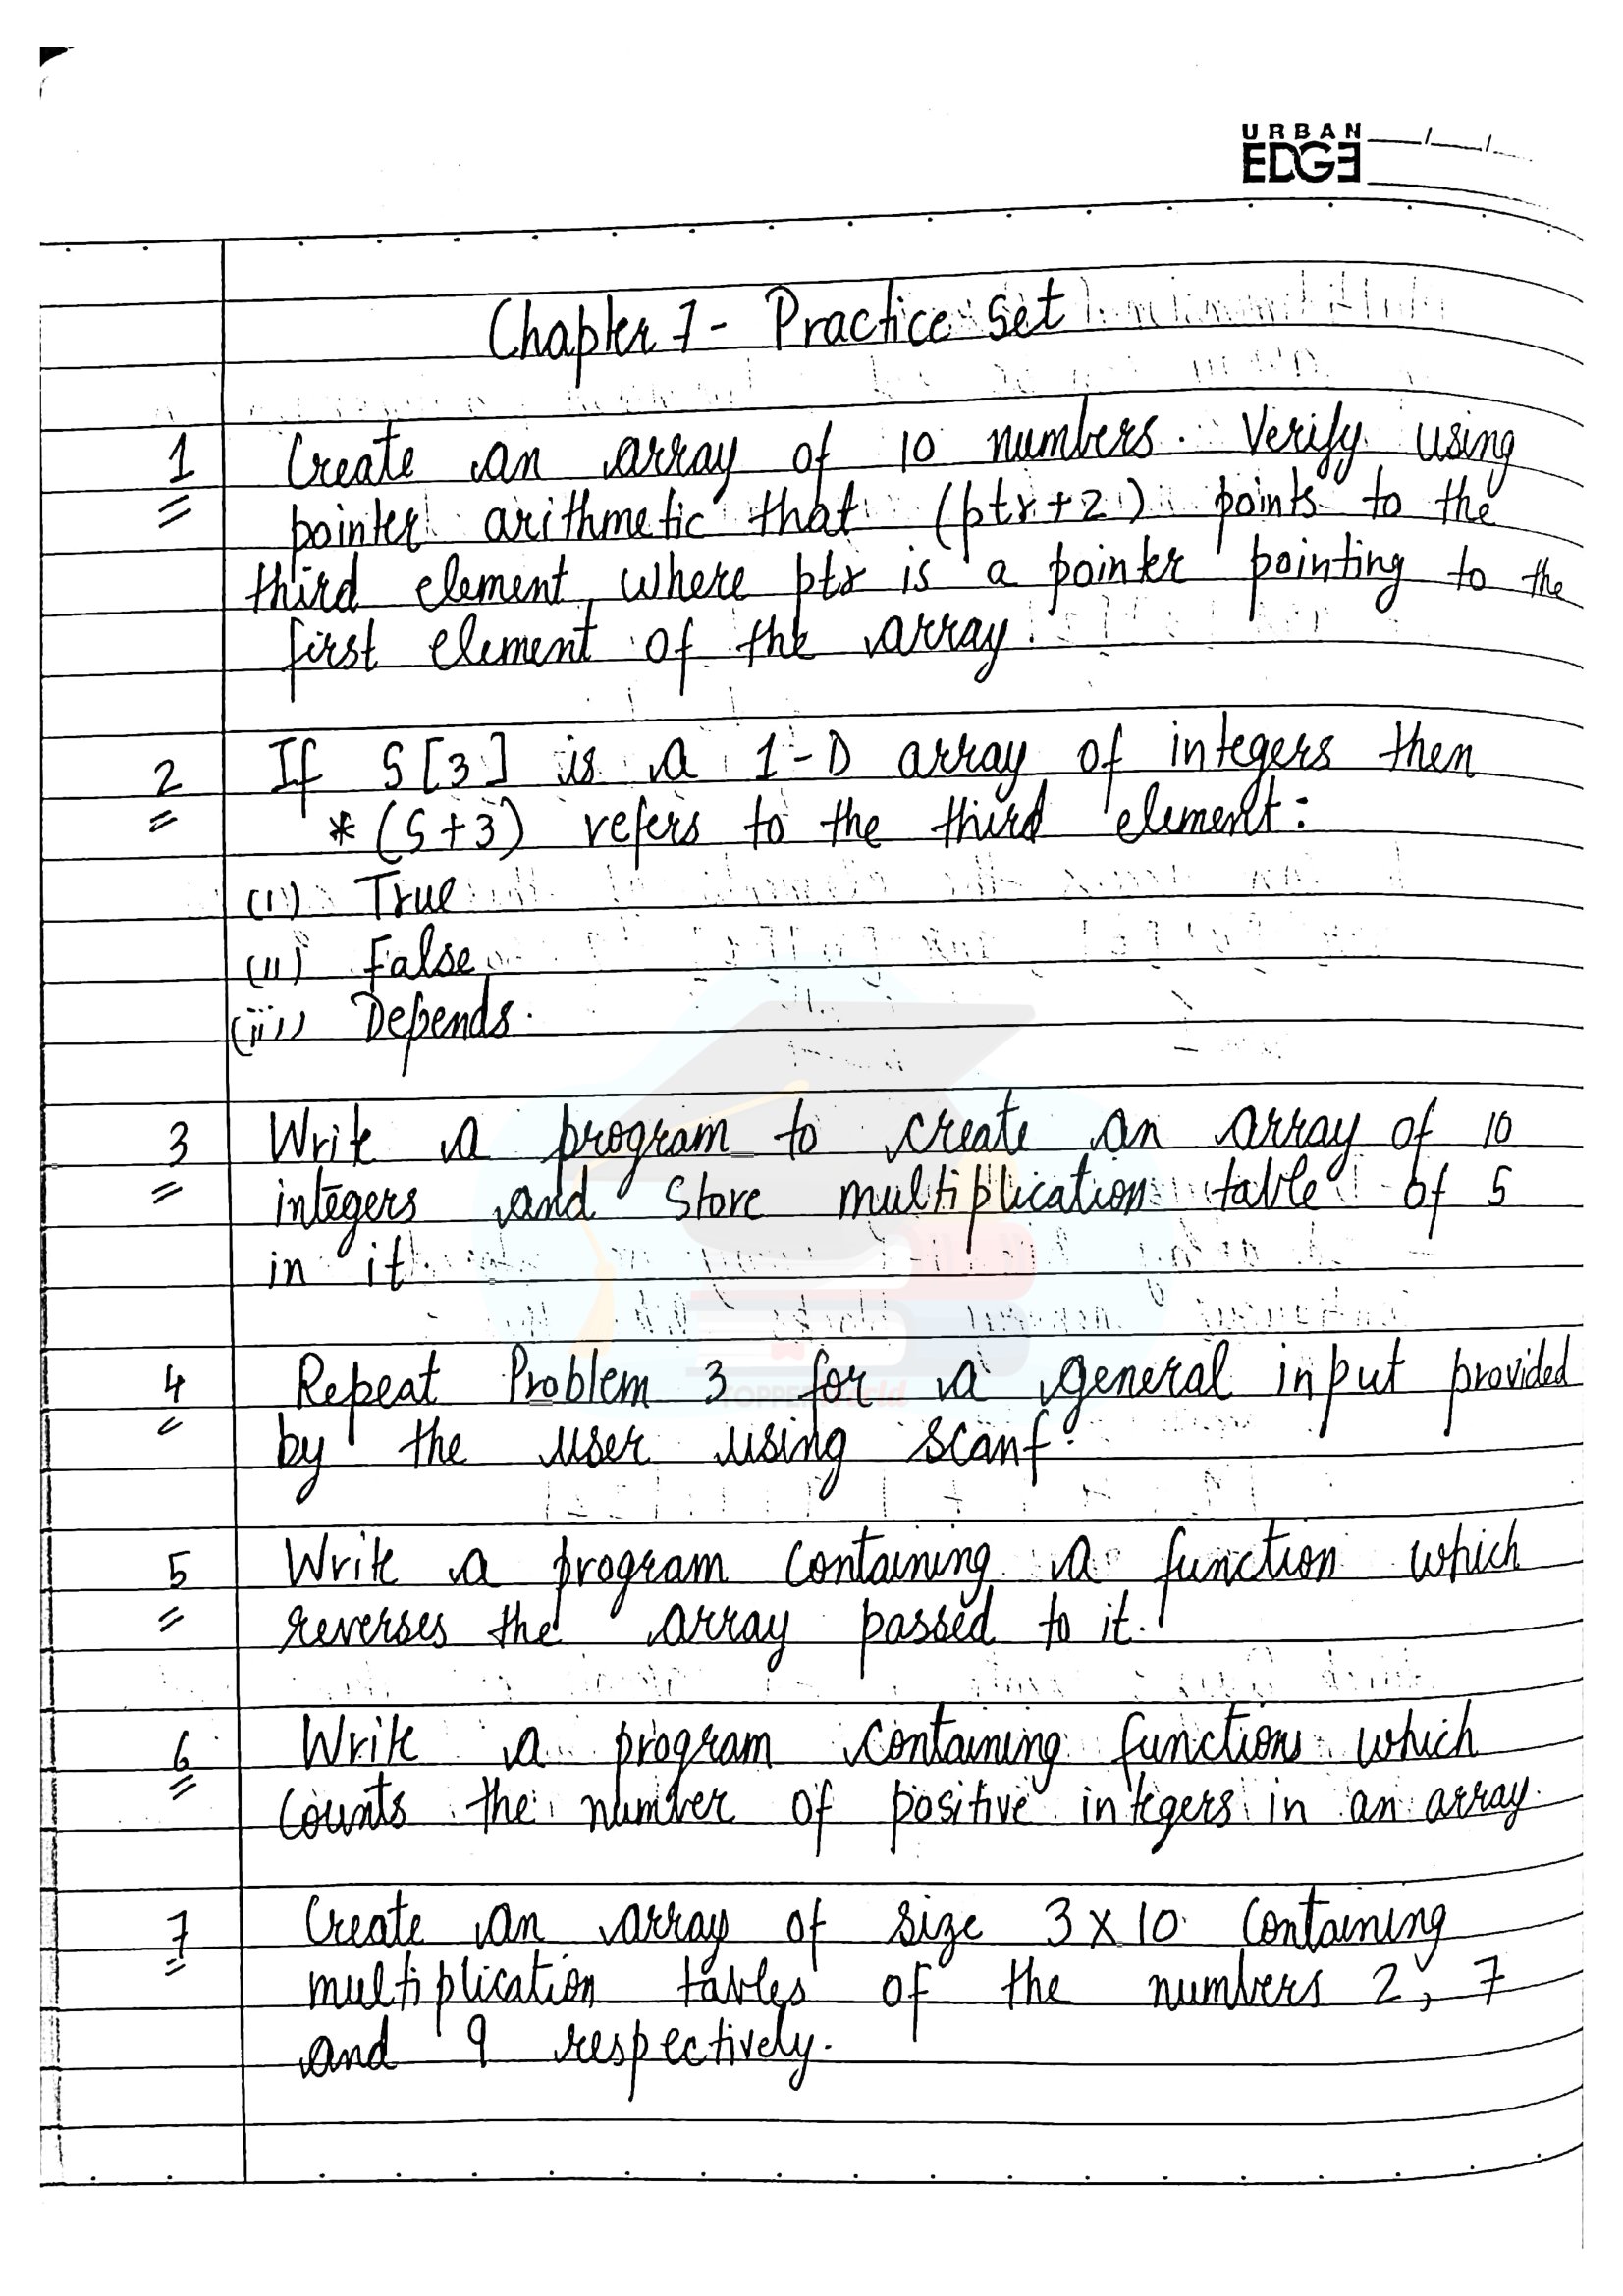 URBAN
EDGE
Chapter 7 - Practice Set
1 Create an array of 10 numbers. Verify using
pointer arithmetic that (ptr+2) points to the
third element where ptr is a pointer pointing to the
first element of the array.
2 If S[3] is a 1-D array of integers then
*(S+3) refers to the third element:
(i) True
(ii) False
(iii) Depends.
3 Write a program to create an array of 10
integers and store multiplication table of 5
in it.
4 Repeat Problem 3 for a general input provided
by the user using scanf.
TOPPERWorld
5 Write a program containing a function which
reverses the array passed to it.
6 Write a program containing functions which
counts the number of positive integers in an array.
7 Create an array of size 3x10 containing
multiplication tables of the numbers 2, 7
and 9 respectively.